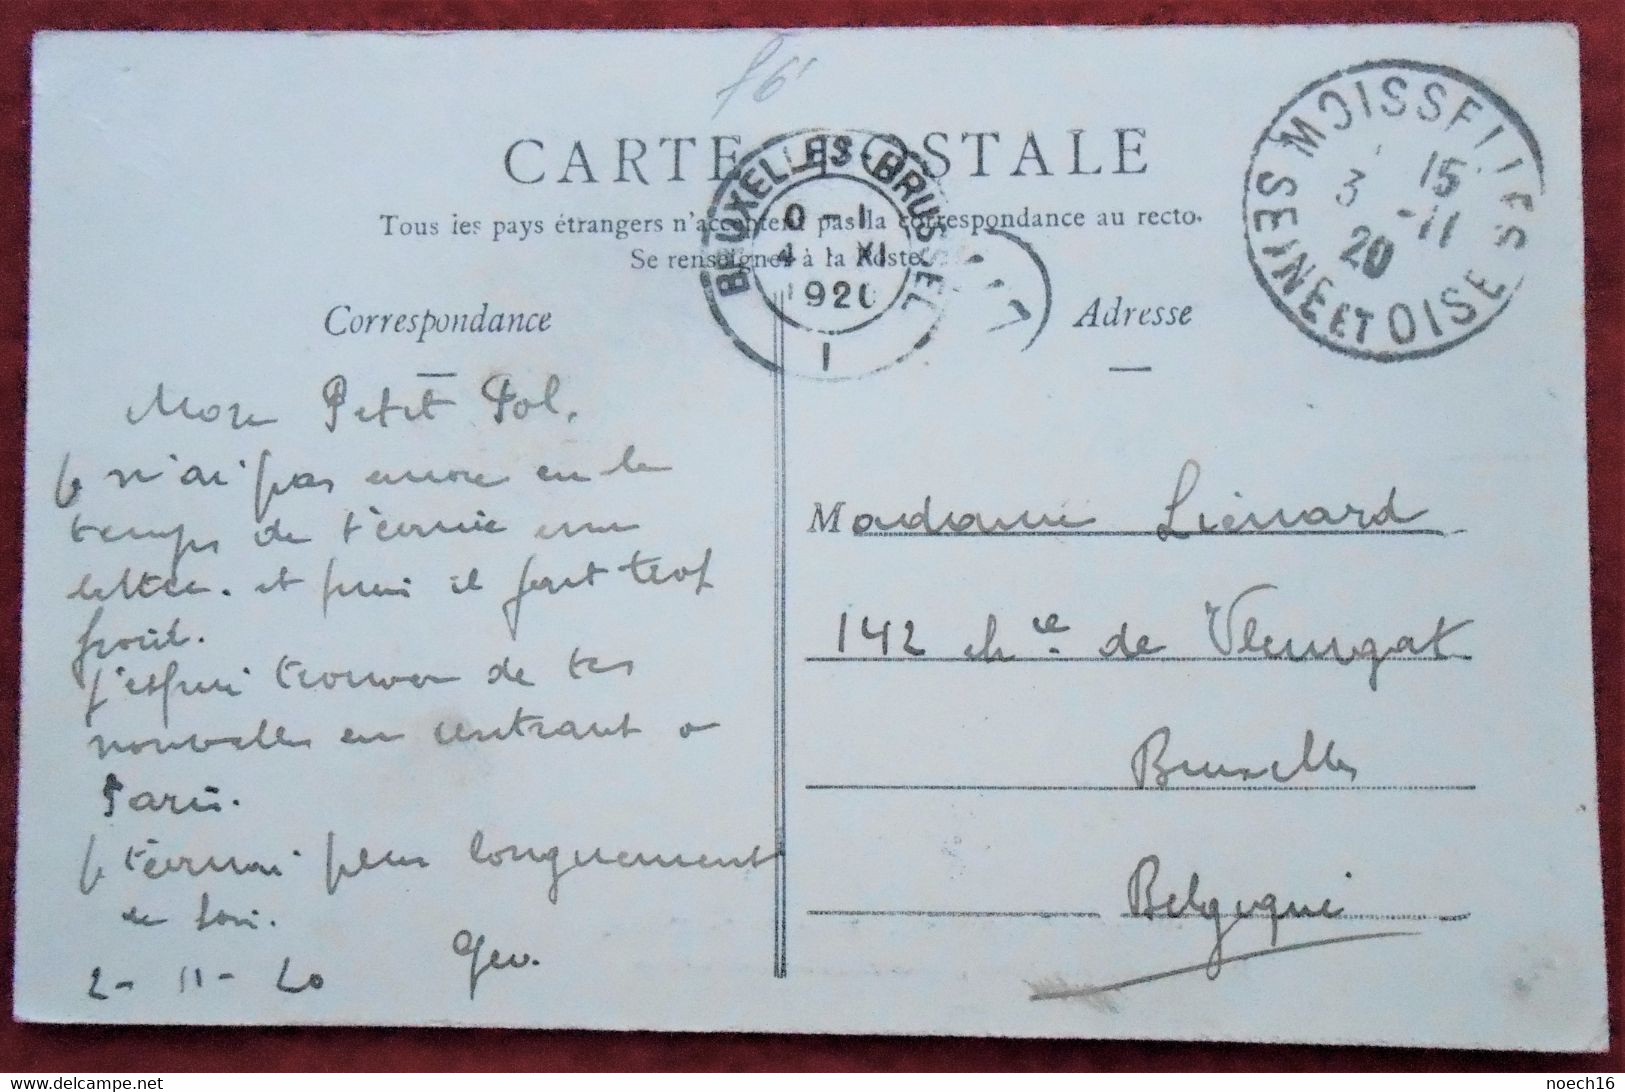 f6'
CARTE POSTALE
Tous les pays étrangers n'acceptent pas la correspondance au recto.
Se renseigner à la Poste
Correspondance
Adresse
BRUXELLES-BRUSSEL
0-1
4 XI
1920
1
MOISSELLES
SEINE ET OISE
15
3 -11
20
Mon Petit Pol,
Je n'ai pas encore eu le
temps de t'écrire une
lettre. et puis il fait trop
froid.
J'espère trouver de tes
nouvelles en rentrant a
Paris.
Je t'écrirai plus longuement
ce soir.
2-11-20 Gev.
Madame Liénard
142 chée de Vleurgat
Bruxelles
Belgique
noech16